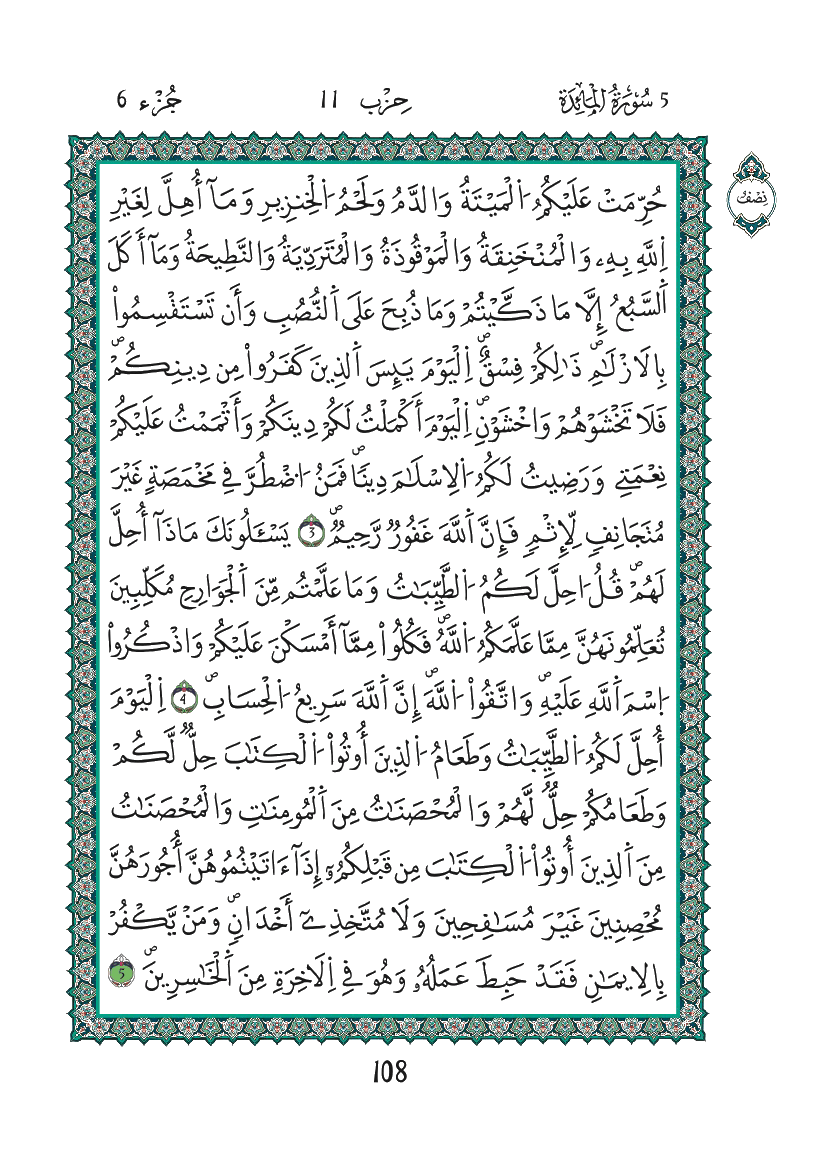 5 سُورَةُ الْمَائِدَة حِزْب 11 جُزْء 6
نِصْف
حُرِّمَتْ عَلَيْكُمُ اُ۬لْمَيْتَةُ وَالدَّمُ وَلَحْمُ اُ۬لْخِنزِيرِ وَمَآ أُهِلَّ لِغَيْرِ
اِ۬للَّهِ بِهِۦ وَالْمُنْخَنِقَةُ وَالْمَوْقُوذَةُ وَالْمُتَرَدِّيَةُ وَالنَّطِيحَةُ وَمَآ أَكَلَ
اَ۬لسَّبُعُ إِلَّا مَا ذَكَّيْتُمْ وَمَا ذُبِحَ عَلَى اَ۬لنُّصُبِ وَأَن تَسْتَقْسِمُواْ
بِالَازْلَٰمِۖ ذَٰلِكُمْ فِسْقٌۖ اِ۬لْيَوْمَ يَئِسَ اَ۬لذِينَ كَفَرُواْ مِن دِينِكُمْۖ
فَلَا تَخْشَوْهُمْ وَاخْشَوْنِۖ اِ۬لْيَوْمَ أَكْمَلْتُ لَكُمْ دِينَكُمْ وَأَتْمَمْتُ عَلَيْكُمْ
نِعْمَتِے وَرَضِيتُ لَكُمُ اُ۬لِاسْلَٰمَ دِيناٗۖ فَمَنُ اُ۟ضْطُرَّ فِے مَخْمَصَةٍ غَيْرَ
مُتَجَانِفٖ لِّإِثْمٖ فَإِنَّ اَ۬للَّهَ غَفُورٞ رَّحِيمٞۖ 3 يَسْـَٔلُونَكَ مَاذَآ أُحِلَّ
لَهُمْۖ قُلُ ا۟حِلَّ لَكُمُ اُ۬لطَّيِّبَٰتُ وَمَا عَلَّمْتُم مِّنَ اَ۬لْجَوَارِحِ مُكَلِّبِينَ
تُعَلِّمُونَهُنَّ مِمَّا عَلَّمَكُمُ اُ۬للَّهُۖ فَكُلُواْ مِمَّآ أَمْسَكْنَ عَلَيْكُمْ وَاذْكُرُواْ
اُ۪سْمَ اَ۬للَّهِ عَلَيْهِۖ وَاتَّقُواْ اُ۬للَّهَۖ إِنَّ اَ۬للَّهَ سَرِيعُ اُ۬لْحِسَابِۖ 4 اِ۬لْيَوْمَ
أُحِلَّ لَكُمُ اُ۬لطَّيِّبَٰتُ وَطَعَامُ اُ۬لذِينَ أُوتُواْ اُ۬لْكِتَٰبَ حِلّٞ لَّكُمْ
وَطَعَامُكُمْ حِلّٞ لَّهُمْ وَالْمُحْصَنَٰتُ مِنَ اَ۬لْمُومِنَٰتِ وَالْمُحْصَنَٰتُ
مِنَ اَ۬لذِينَ أُوتُواْ اُ۬لْكِتَٰبَ مِن قَبْلِكُمُۥٓ إِذَآ ءَاتَيْتُمُوهُنَّ أُجُورَهُنَّ
مُحْصِنِينَ غَيْرَ مُسَٰفِحِينَ وَلَا مُتَّخِذِےٓ أَخْدَانٖۖ وَمَنْ يَّكْفُرْ
بِالِايمَٰنِ فَقَدْ حَبِطَ عَمَلُهُۥ وَهُوَ فِے اِ۬لَاخِرَةِ مِنَ اَ۬لْخَٰسِرِينَۖ 5
108